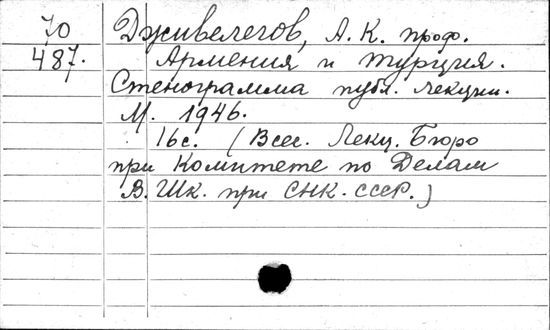 70 Дживелегов, А. К. проф.
487. Армения и Турция.
Стенограмма публ. лекции.
М. 1946.
16 с. (Всес. Лекц. Бюро
при Комитете по Делам
В. Шк. при СНК. СССР.)